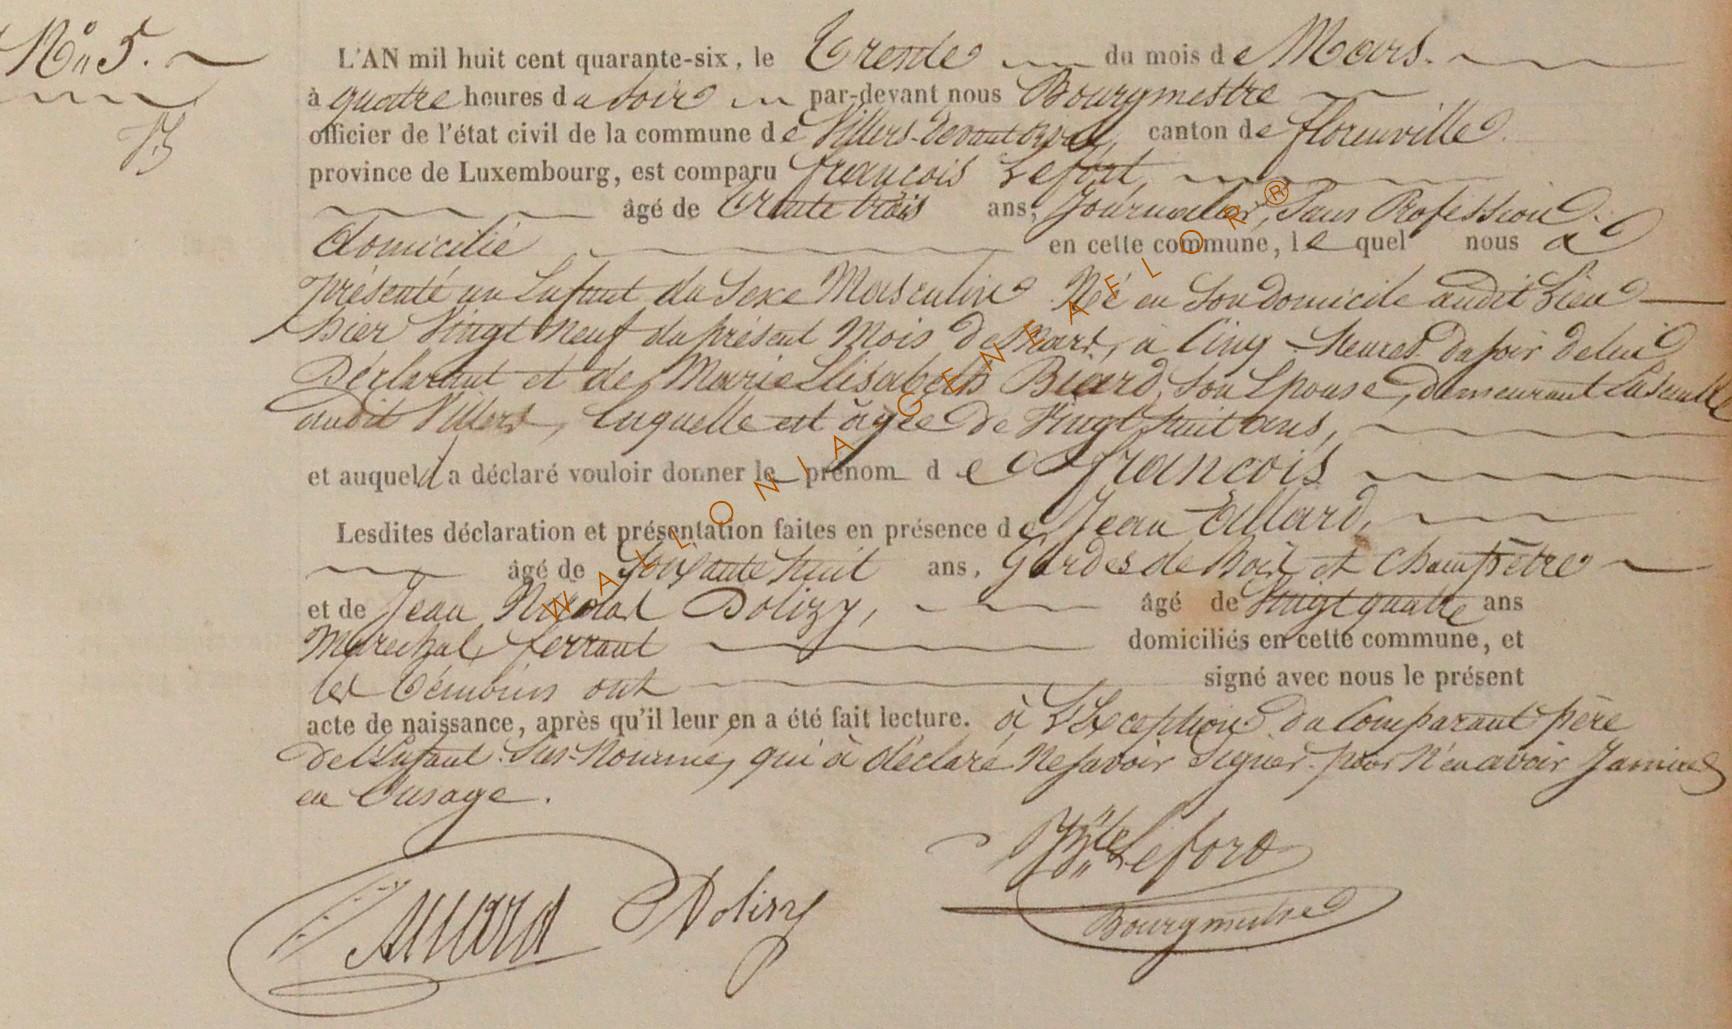 N° 5.
L'AN mil huit cent quarante-six, le Trente du mois de Mars.
à quatre heures du soir par-devant nous Bourgmestre
officier de l'état civil de la commune de Villers-devant orval, canton de florenville
province de Luxembourg, est comparu françois Lefort,
âgé de trente trois ans, Journalier, Sans Profession
domicilié en cette commune, lequel nous a
présenté un Enfant du Sexe Masculin Né en Son domicile audit Lieu
hier Vingt Neuf du présent Mois de Mars, à Cinq heures du soir de lui
Déclarant et de Marie Elisabeth Biard, Son Epouse, demeurant Ensemble
audit Villers, laquelle est âgée de Vingt huit ans,
et auquel il a déclaré vouloir donner le prénom de françois
Lesdites déclaration et présentation faites en présence de Jean
âgé de Soixante huit ans, Gardes de bois et champêtre
et de Jean Nicolas Dolizy, âgé de Vingt quatre ans
Marechal ferrant domiciliés en cette commune, et
les témoins ont signé avec nous le présent
acte de naissance, après qu'il leur en a été fait lecture. à L'Exception du Comparant père
de L'Enfant Sus-Nommé, qui à déclaré Ne savoir Signer pour N'en avoir Jamais
eu L'usage.
Lefort
Dolizy
Bourgmestre
WALLONIA GENEAFLOR®